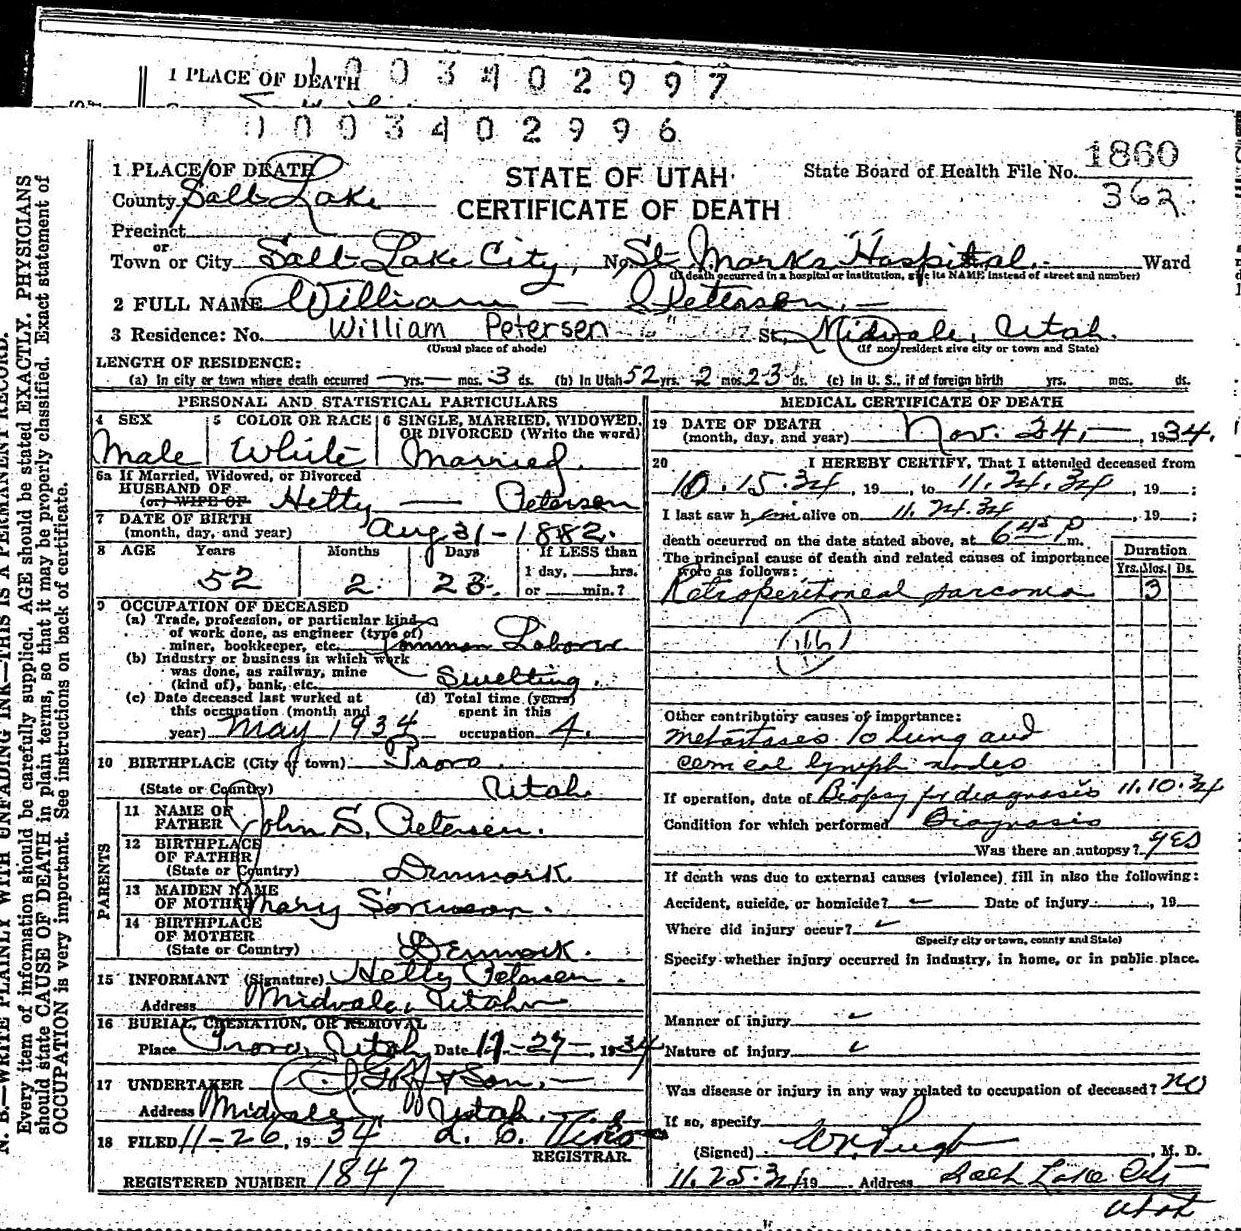 1 PLACE OF DEATH
0 0 3 4 0 2 9 9 7
0 0 0 3 4 0 2 9 9 6
1 PLACE OF DEATH
County Salt Lake
STATE OF UTAH
CERTIFICATE OF DEATH
State Board of Health File No. 1860
362
Precinct
or
Town or City Salt Lake City, No. St Marks Hospital. Ward
(If death occurred in a hospital or institution, give its NAME instead of street and number)
2 FULL NAME William — Petersen. —
3 Residence: No. William Petersen St. Midvale, Utah.
(Usual place of abode) (If nonresident give city or town and State)
LENGTH OF RESIDENCE:
(a) In city or town where death occurred — yrs. — mos. 3 ds. (b) In Utah 52 yrs. 2 mos. 23 ds. (c) In U. S., if of foreign birth yrs. mos. ds.
PERSONAL AND STATISTICAL PARTICULARS
4 SEX
Male
5 COLOR OR RACE
White
6 SINGLE, MARRIED, WIDOWED, OR DIVORCED (Write the word)
Married.
6a If Married, Widowed, or Divorced
HUSBAND OF
(or) WIFE OF Hetty — Petersen
7 DATE OF BIRTH
(month, day, and year) Aug 31 - 1882.
8 AGE Years Months Days If LESS than
52 2 23. 1 day, hrs.
or min.?
9 OCCUPATION OF DECEASED
(a) Trade, profession, or particular kind
of work done, as engineer (type of)
miner, bookkeeper, etc. Common Laborer
(b) Industry or business in which work
was done, as railway, mine
(kind of), bank, etc. Smelting.
(c) Date deceased last worked at
this occupation (month and
year) May 1934
(d) Total time (years)
spent in this
occupation 4.
10 BIRTHPLACE (City of town) Provo
(State or Country) Utah
PARENTS
11 NAME OF
FATHER John S. Petersen.
12 BIRTHPLACE
OF FATHER
(State or Country) Denmark
13 MAIDEN NAME
OF MOTHER Mary Sorenson.
14 BIRTHPLACE
OF MOTHER
(State or Country) Denmark.
15 INFORMANT (Signature) Hetty Petersen.
Address Midvale, Utah
16 BURIAL, CREMATION, OR REMOVAL
Place Provo, Utah Date 11-27-, 1934
17 UNDERTAKER Goff & Son. —
Address Midvale, Utah.
18 FILED 11-26, 1934
REGISTRAR.
REGISTERED NUMBER 1847
MEDICAL CERTIFICATE OF DEATH
19 DATE OF DEATH
(month, day, and year) Nov. 24, —, 1934.
20 I HEREBY CERTIFY, That I attended deceased from
10.15.34, 19 , to 11.24.34, 19 ;
I last saw him alive on 11.24.34, 19 ;
death occurred on the date stated above, at 6 45 P m.
The principal cause of death and related causes of importance
were as follows:
Duration
Yrs. Mos. Ds.
Retroperitoneal sarcoma 3
Other contributory causes of importance:
Metastases to lung and
cervical lymph nodes
If operation, date of Biopsy for diagnosis 11.10.34
Condition for which performed Diagnosis
Was there an autopsy? yes
If death was due to external causes (violence) fill in also the following:
Accident, suicide, or homicide? Date of injury , 19
Where did injury occur?
(Specify city or town, county and State)
Specify whether injury occurred in industry, in home, or in public place.
Manner of injury
Nature of injury
Was disease or injury in any way related to occupation of deceased? no
If so, specify
(Signed) W R Pugh, M. D.
11.25.34 19 Address Salt Lake City
Utah
N. B.—WRITE PLAINLY WITH UNFADING INK—THIS IS A PERMANENT RECORD.
Every item of information should be carefully supplied. AGE should be stated EXACTLY. PHYSICIANS
should state CAUSE OF DEATH in plain terms, so that it may be properly classified. Exact statement of
OCCUPATION is very important. See instructions on back of certificate.